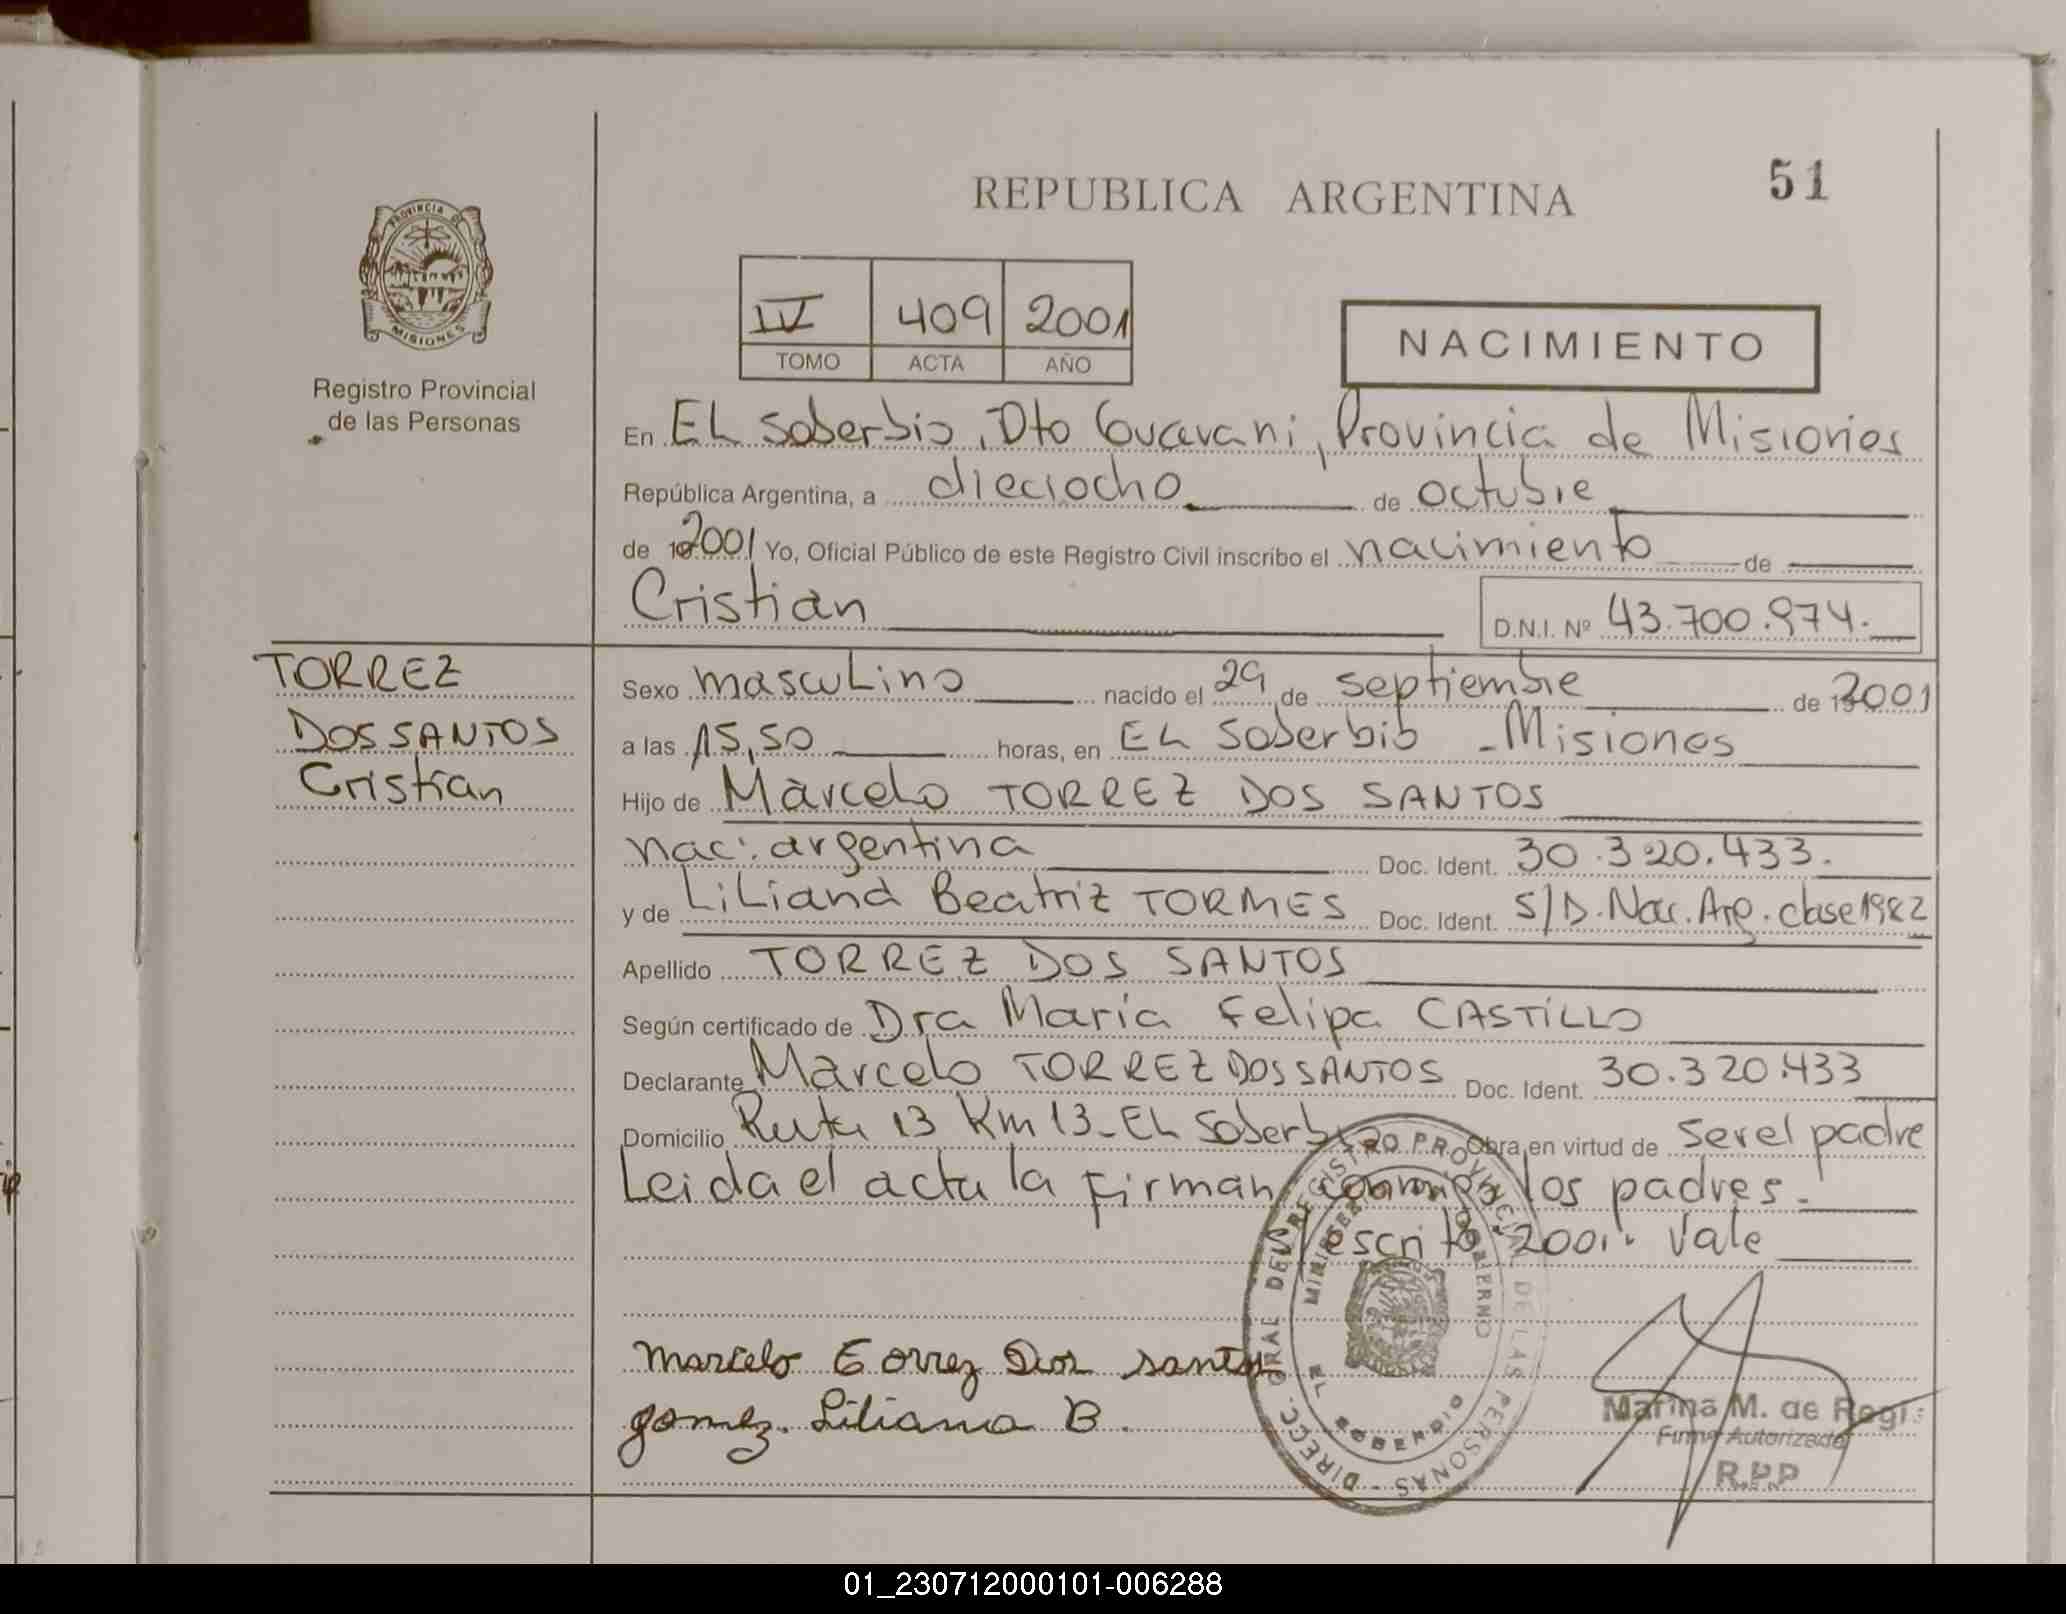 51
REPUBLICA ARGENTINA
PROVINCIA DE
MISIONES
Registro Provincial
de las Personas
IV 409 2001
TOMO ACTA AÑO
NACIMIENTO
En EL Soberbio, Dto Guarani, Provincia de Misiones
República Argentina, a dieciocho de octubre
de 2001 Yo, Oficial Público de este Registro Civil inscribo el nacimiento de
Cristian D.N.I. Nº 43.700.974.
TORREZ
DOS SANTOS
Cristian
Sexo masculino nacido el 29 de septiembre de 2001
a las 15,50 horas, en EL Soberbio - Misiones
Hijo de Marcelo TORREZ DOS SANTOS
nac: argentina Doc. Ident. 30.320.433.
y de LiLiana Beatriz TORMES Doc. Ident. S/D. Nac. Arg. clase 1982
Apellido TORREZ DOS SANTOS
Según certificado de Dra Maria Felipa CASTILLO
Declarante Marcelo TORREZ DOS SANTOS Doc. Ident. 30.320.433
Domicilio Ruta 13 Km 13 - EL Soberbio Obra en virtud de ser el padre
Leida el acta la firman conmigo los padres.
escrito "2001" vale
DIRECC. GRAL DEL REGISTRO PROVINCIAL DE LAS PERSONAS
MINISTERIO GOBIERNO
EL SOBERBIO
marcelo Torrez Dos santos
gomez. Liliana B.
Marina M. de Regis
Firma Autorizada
R.P.P
01_230712000101-006288